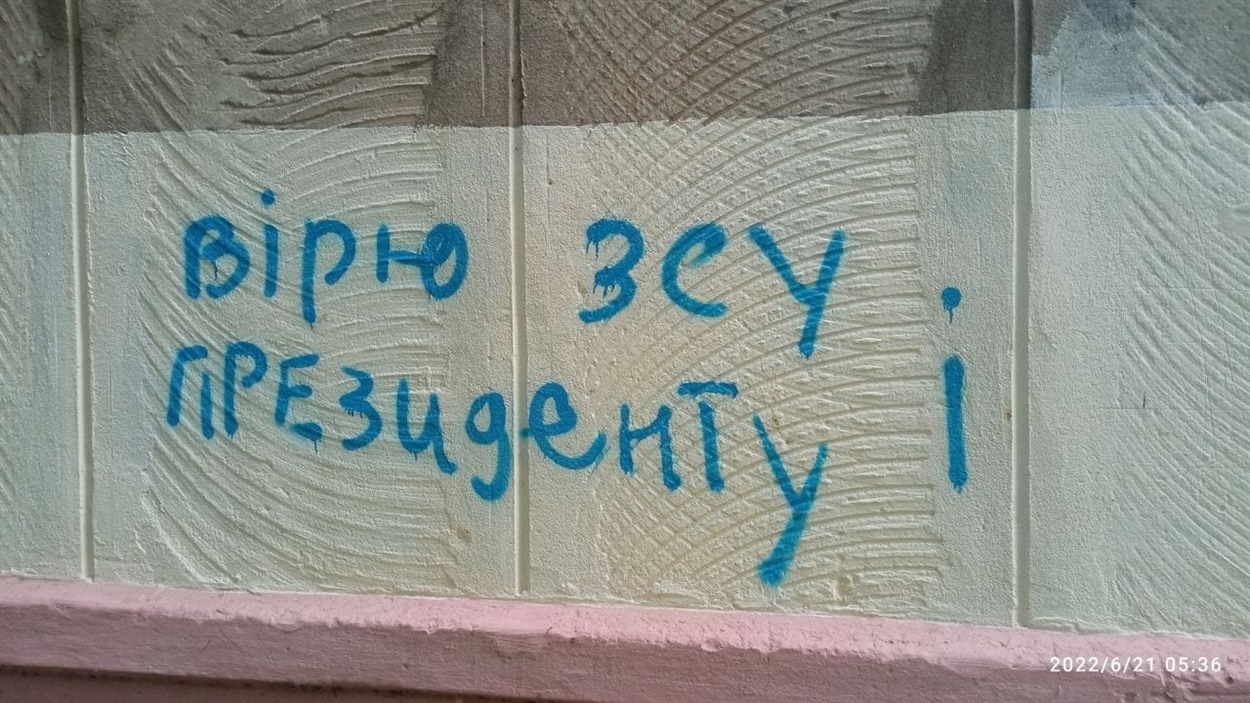 вірю зсу і
ПРЕЗиденту
2022/6/21 05:36